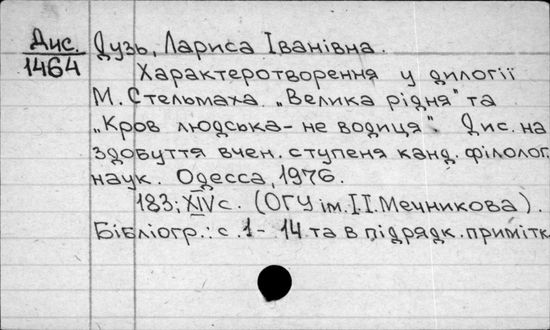 Дис. Дузь, Лариса Іванівна.
1464
Характеротворення у дилогії
М. Стельмаха „Велика рідня" та
„Кров людська - не водиця". Дис. на
здобуття вчен. ступеня канд. філолог.
наук. Одесса, 1976.
183; XIV с. (ОГУ ім. І.І. Мечникова).
Бібліогр.: с. 1 - 14 та в підрядк. примітк.